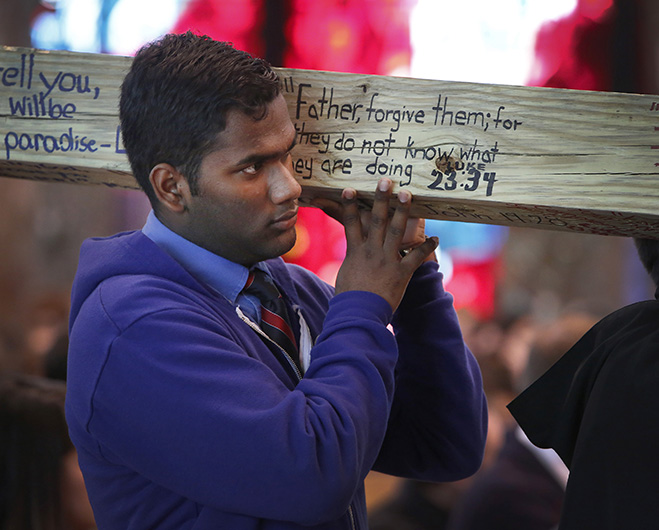 tell you,
will be
paradise-L
"Father, forgive them; for
they do not know what
they are doing LUKE
23:34